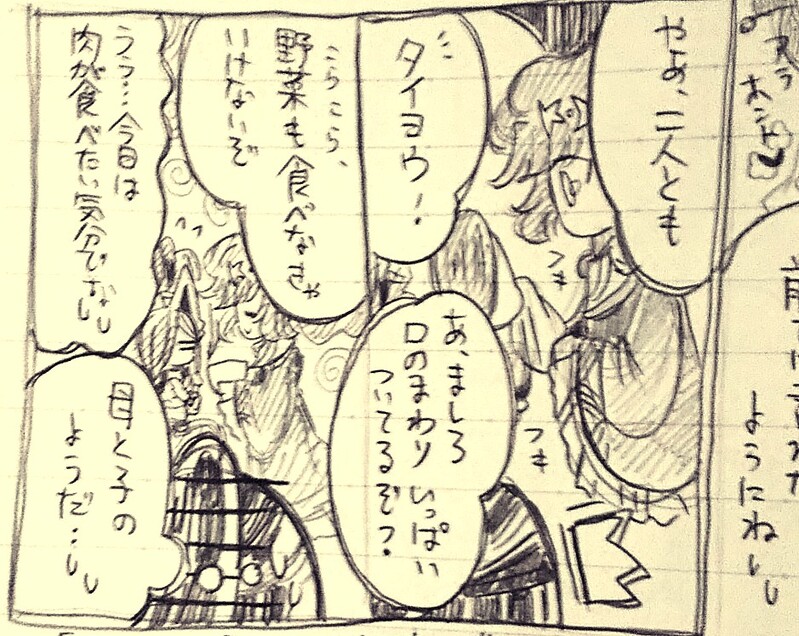 やぁ、二人とも
タイヨウ!
こらこら、
野菜も食べなきゃ
いけないぞ
うぅ…今日は
肉が食べたい気分でない
あ、ましろ
口のまわり いっぱい
ついてるぞ?
つき
つき
母と子の
ようだ…
ようにね